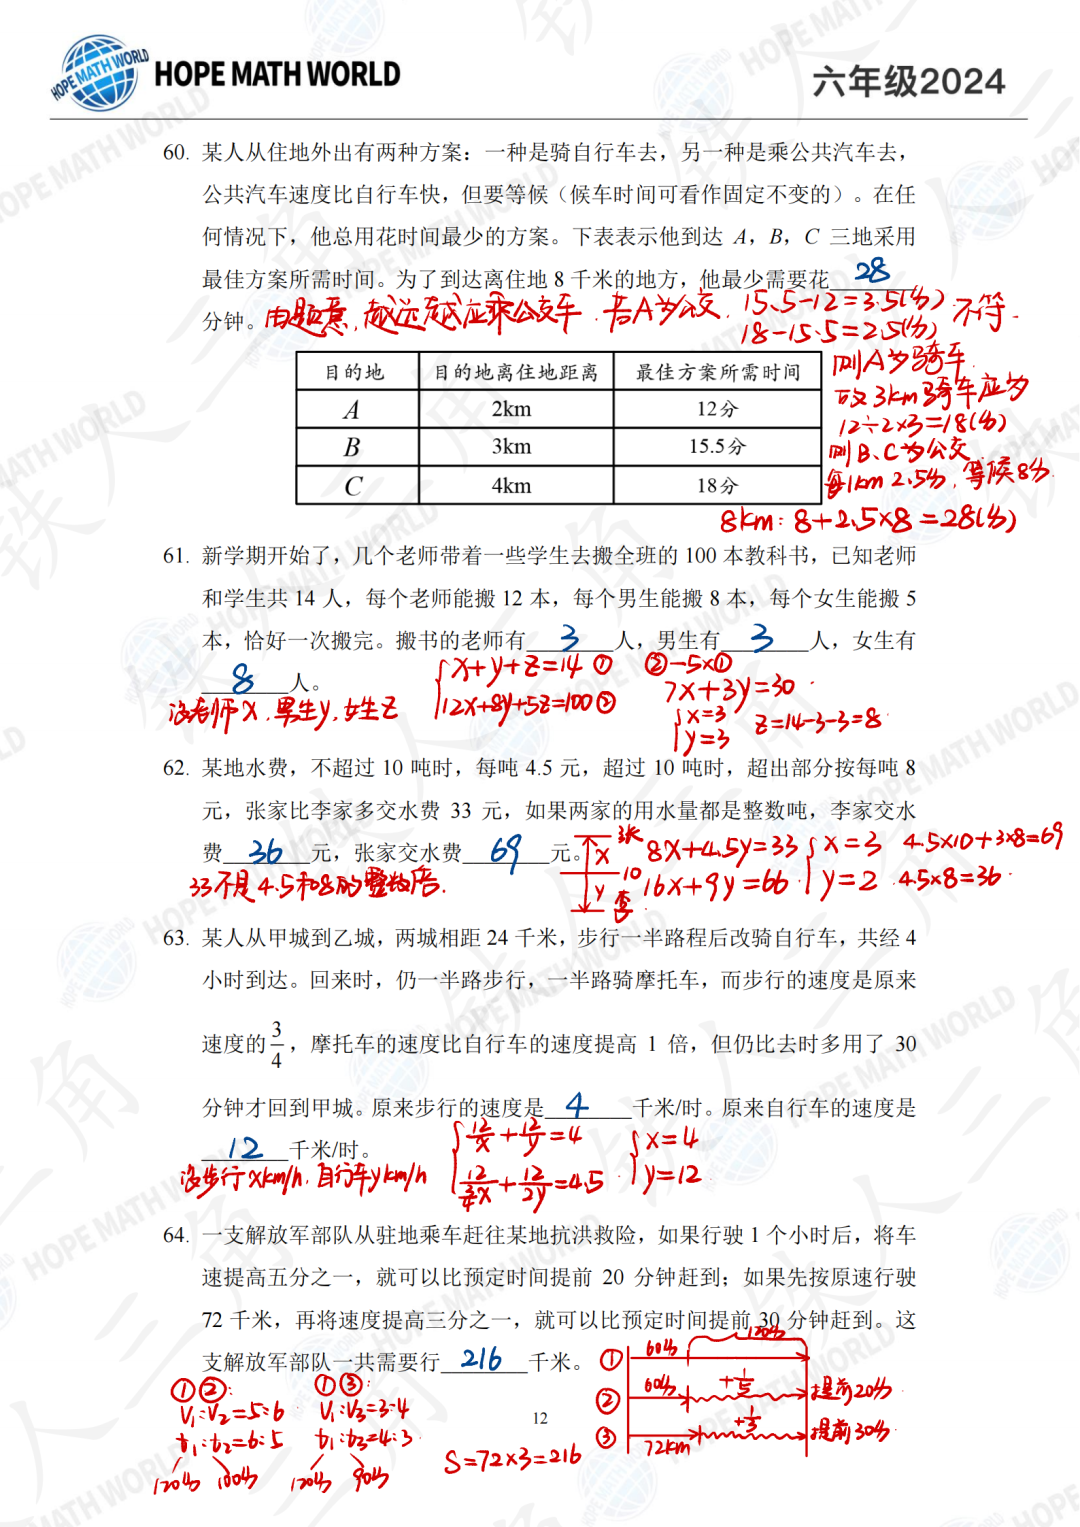 HOPE MATH WORLD
六年级2024
60. 某人从住地外出有两种方案：一种是骑自行车去，另一种是乘公共汽车去，
公共汽车速度比自行车快，但要等候（候车时间可看作固定不变的）。在任
何情况下，他总用花时间最少的方案。下表表示他到达 A，B，C 三地采用
最佳方案所需时间。为了到达离住地 8 千米的地方，他最少需要花 28
分钟。由题意，越远越应乘公交车．若A为公交，15.5-12=3.5(分) 不符.
18-15.5=2.5(分)
目的地 目的地离住地距离 最佳方案所需时间
A 2km 12分
B 3km 15.5分
C 4km 18分
则A为骑车
故3km骑车应为
12÷2×3=18(分)
则B、C为公交
每1km 2.5分，等候8分
8km: 8+2.5×8=28(分)
61. 新学期开始了，几个老师带着一些学生去搬全班的 100 本教科书，已知老师
和学生共 14 人，每个老师能搬 12 本，每个男生能搬 8 本，每个女生能搬 5
本，恰好一次搬完。搬书的老师有 3 人，男生有 3 人，女生有
8 人。
设老师x，男生y，女生z
x+y+z=14 ①
12x+8y+5z=100 ②
②-5×①
7x+3y=30
x=3
y=3
z=14-3-3=8
62. 某地水费，不超过 10 吨时，每吨 4.5 元，超过 10 吨时，超出部分按每吨 8
元，张家比李家多交水费 33 元，如果两家的用水量都是整数吨，李家交水
费 36 元，张家交水费 69 元。
33不是4.5和8的整数倍.
张
x
10
y
李
8x+4.5y=33
16x+9y=66
x=3
y=2
4.5×10+3×8=69
4.5×8=36
63. 某人从甲城到乙城，两城相距 24 千米，步行一半路程后改骑自行车，共经 4
小时到达。回来时，仍一半路步行，一半路骑摩托车，而步行的速度是原来
速度的3/4，摩托车的速度比自行车的速度提高 1 倍，但仍比去时多用了 30
分钟才回到甲城。原来步行的速度是 4 千米/时。原来自行车的速度是
12 千米/时。
设步行xkm/h，自行车ykm/h
12/x+12/y=4
12/(3/4x)+12/2y=4.5
x=4
y=12
64. 一支解放军部队从驻地乘车赶往某地抗洪救险，如果行驶 1 个小时后，将车
速提高五分之一，就可以比预定时间提前 20 分钟赶到；如果先按原速行驶
72 千米，再将速度提高三分之一，就可以比预定时间提前 30 分钟赶到。这
支解放军部队一共需要行 216 千米。
① 60分 120分
② 60分 +1/5 提前20分
③ 72km +1/3 提前30分
①②:
V₁:V₂=5:6
t₁:t₂=6:5
120分 100分
①③:
V₁:V₃=3:4
t₁:t₃=4:3
120分 90分
S=72×3=216
12